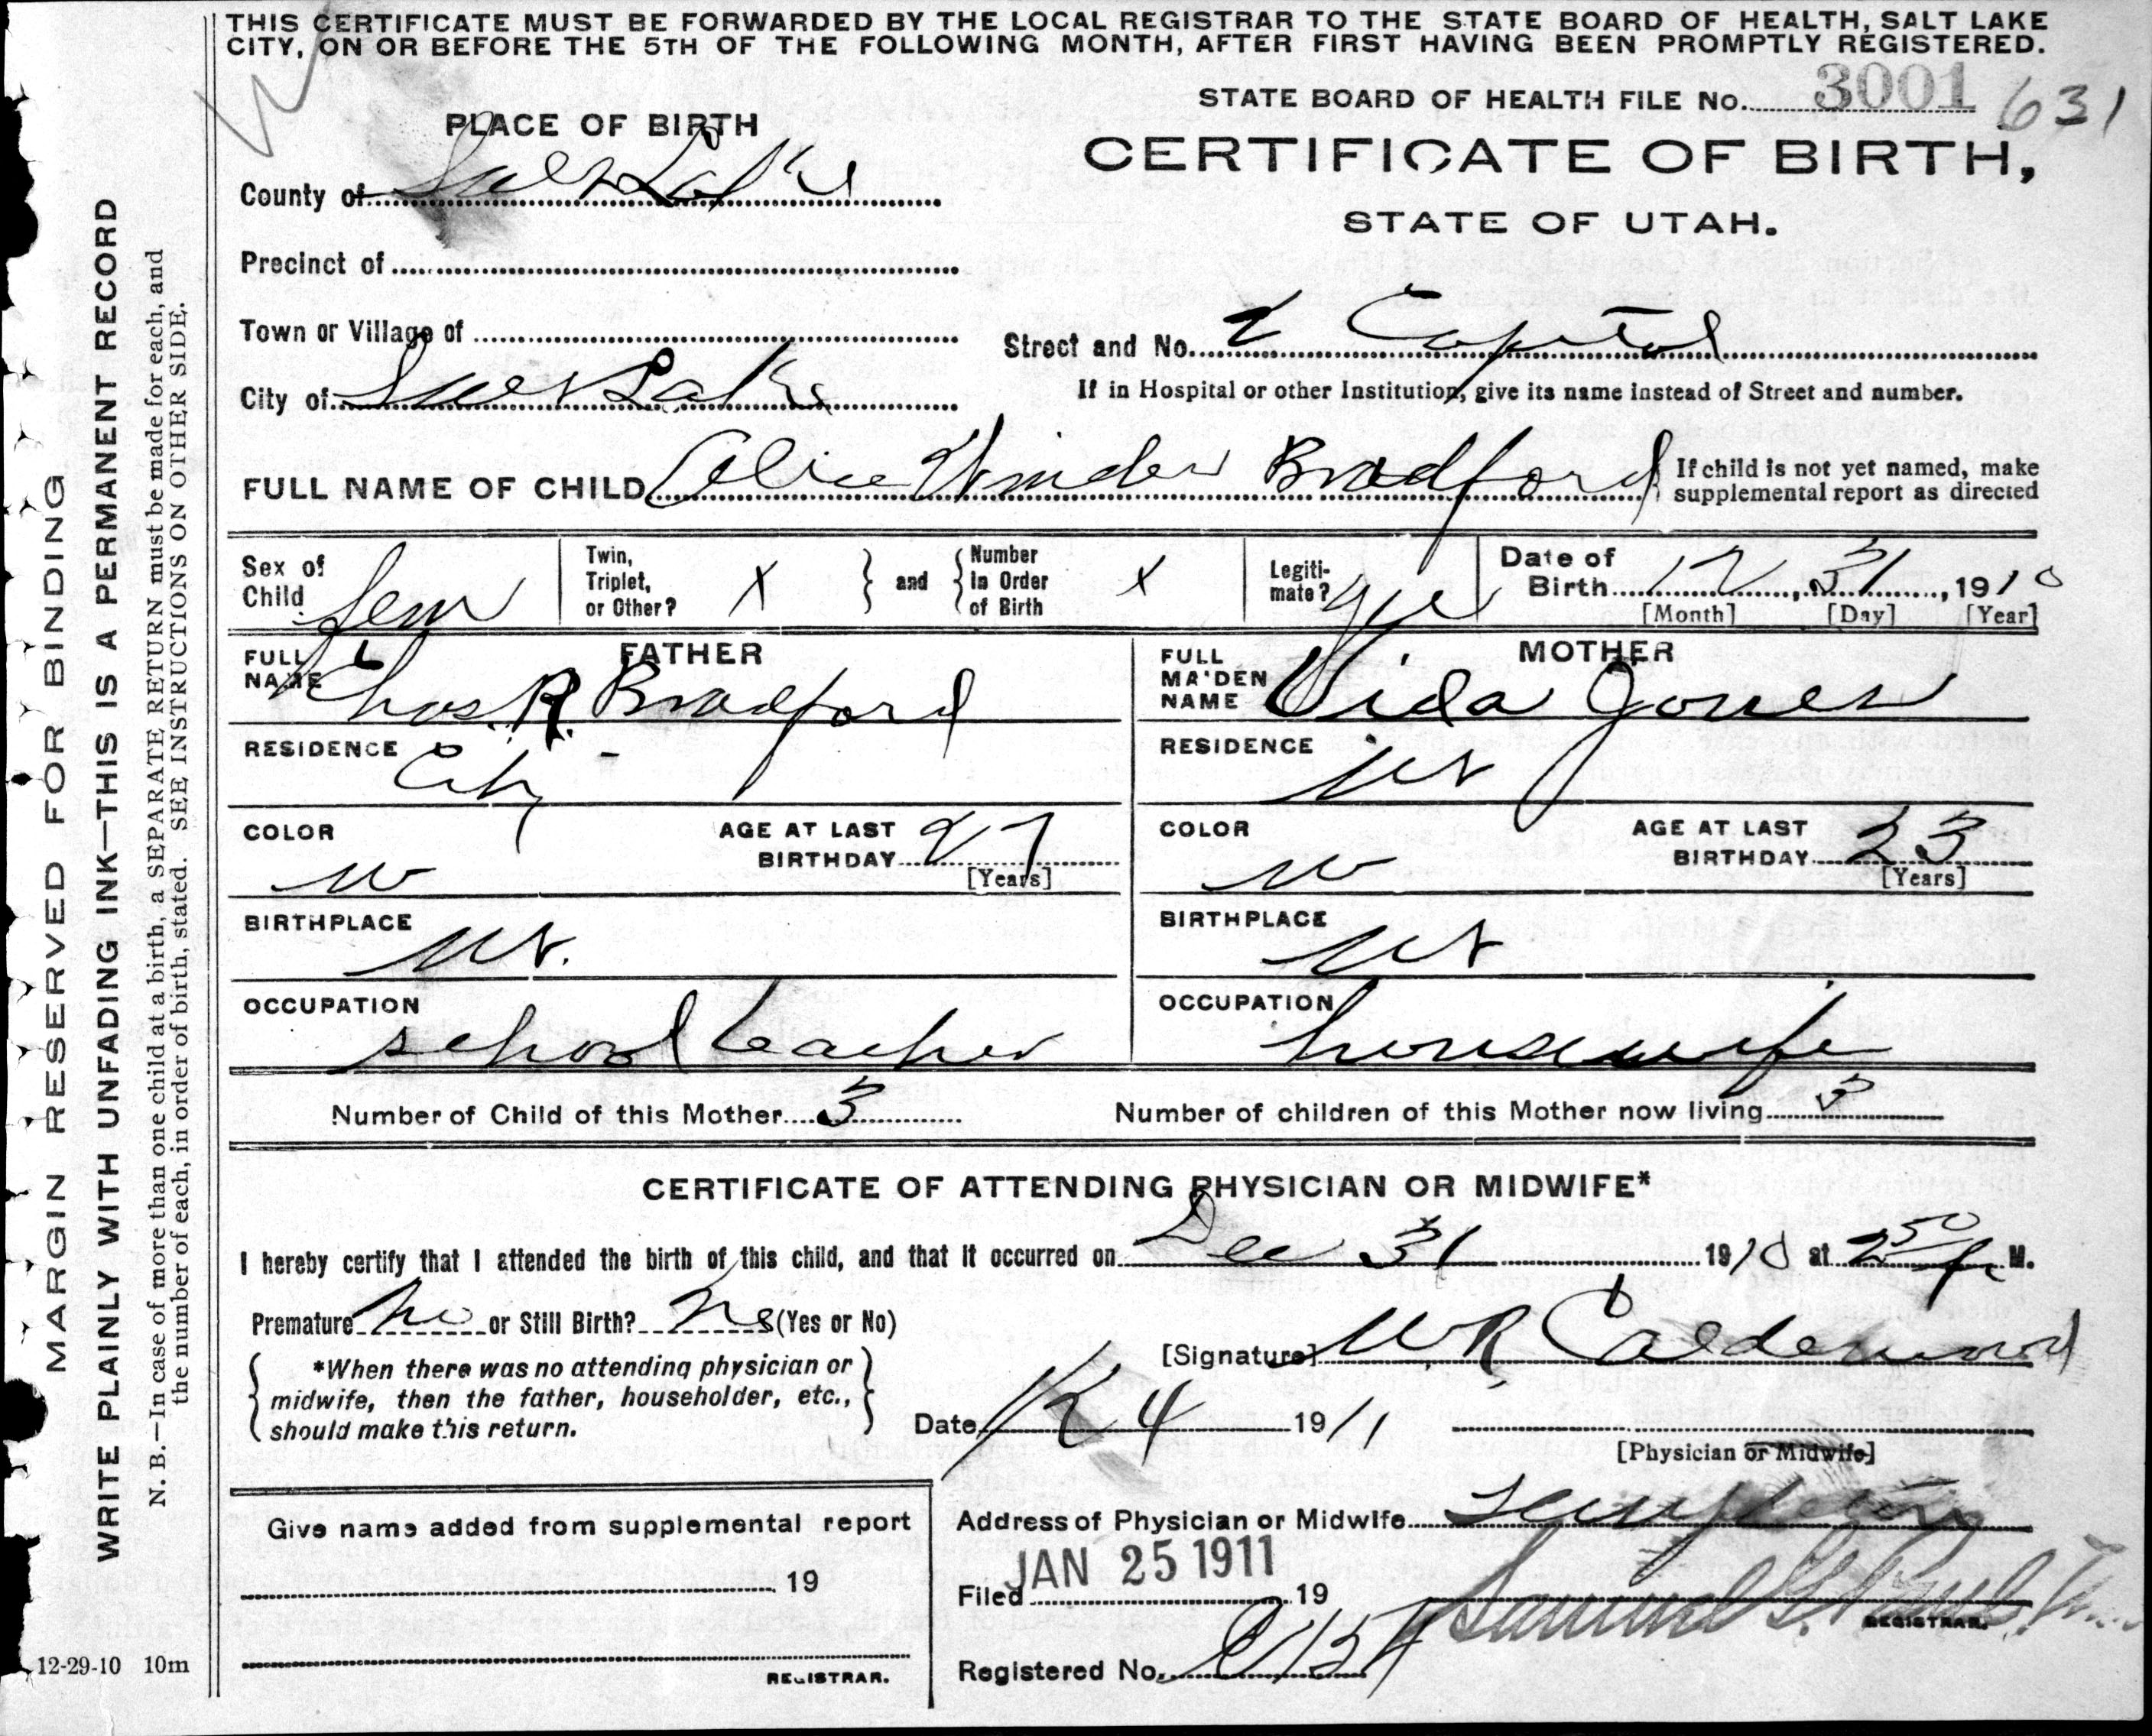 THIS CERTIFICATE MUST BE FORWARDED BY THE LOCAL REGISTRAR TO THE STATE BOARD OF HEALTH, SALT LAKE
CITY, ON OR BEFORE THE 5TH OF THE FOLLOWING MONTH, AFTER FIRST HAVING BEEN PROMPTLY REGISTERED.
STATE BOARD OF HEALTH FILE No. 3001 631
PLACE OF BIRTH
CERTIFICATE OF BIRTH,
STATE OF UTAH.
County of Salt Lake
Precinct of
Town or Village of
Street and No. Capitol
City of Salt Lake
If in Hospital or other Institution, give its name instead of Street and number.
FULL NAME OF CHILD Alice Winder Bradford
If child is not yet named, make
supplemental report as directed
Sex of Child fem
Twin, Triplet, or Other? X } and { Number In Order of Birth X
Legiti-mate? yes
Date of Birth 12, 31, 1910
[Month] [Day] [Year]
FATHER
FULL NAME Chas. R. Bradford
RESIDENCE City
COLOR W
AGE AT LAST BIRTHDAY 27
[Years]
BIRTHPLACE Ut.
OCCUPATION school teacher
MOTHER
FULL MAIDEN NAME Vida Jones
RESIDENCE Ut
COLOR W
AGE AT LAST BIRTHDAY 23
[Years]
BIRTHPLACE Ut
OCCUPATION housewife
Number of Child of this Mother 3
Number of children of this Mother now living 3
CERTIFICATE OF ATTENDING PHYSICIAN OR MIDWIFE*
I hereby certify that I attended the birth of this child, and that it occurred on Dec 31 1910 at 2 50 P M.
Premature no or Still Birth? no (Yes or No)
*When there was no attending physician or
midwife, then the father, householder, etc.,
should make this return.
[Signature] W R Calderwood
Date 4 1911
[Physician or Midwife]
Give name added from supplemental report
19
REGISTRAR.
Address of Physician or Midwife Templeton
Filed JAN 25 1911 19
Samuel G. Paul
REGISTRAR.
Registered No.
12-29-10 10m
MARGIN RESERVED FOR BINDING
WRITE PLAINLY WITH UNFADING INK—THIS IS A PERMANENT RECORD
N. B.—In case of more than one child at a birth, a SEPARATE RETURN must be made for each, and
the number of each, in order of birth, stated. SEE INSTRUCTIONS ON OTHER SIDE.